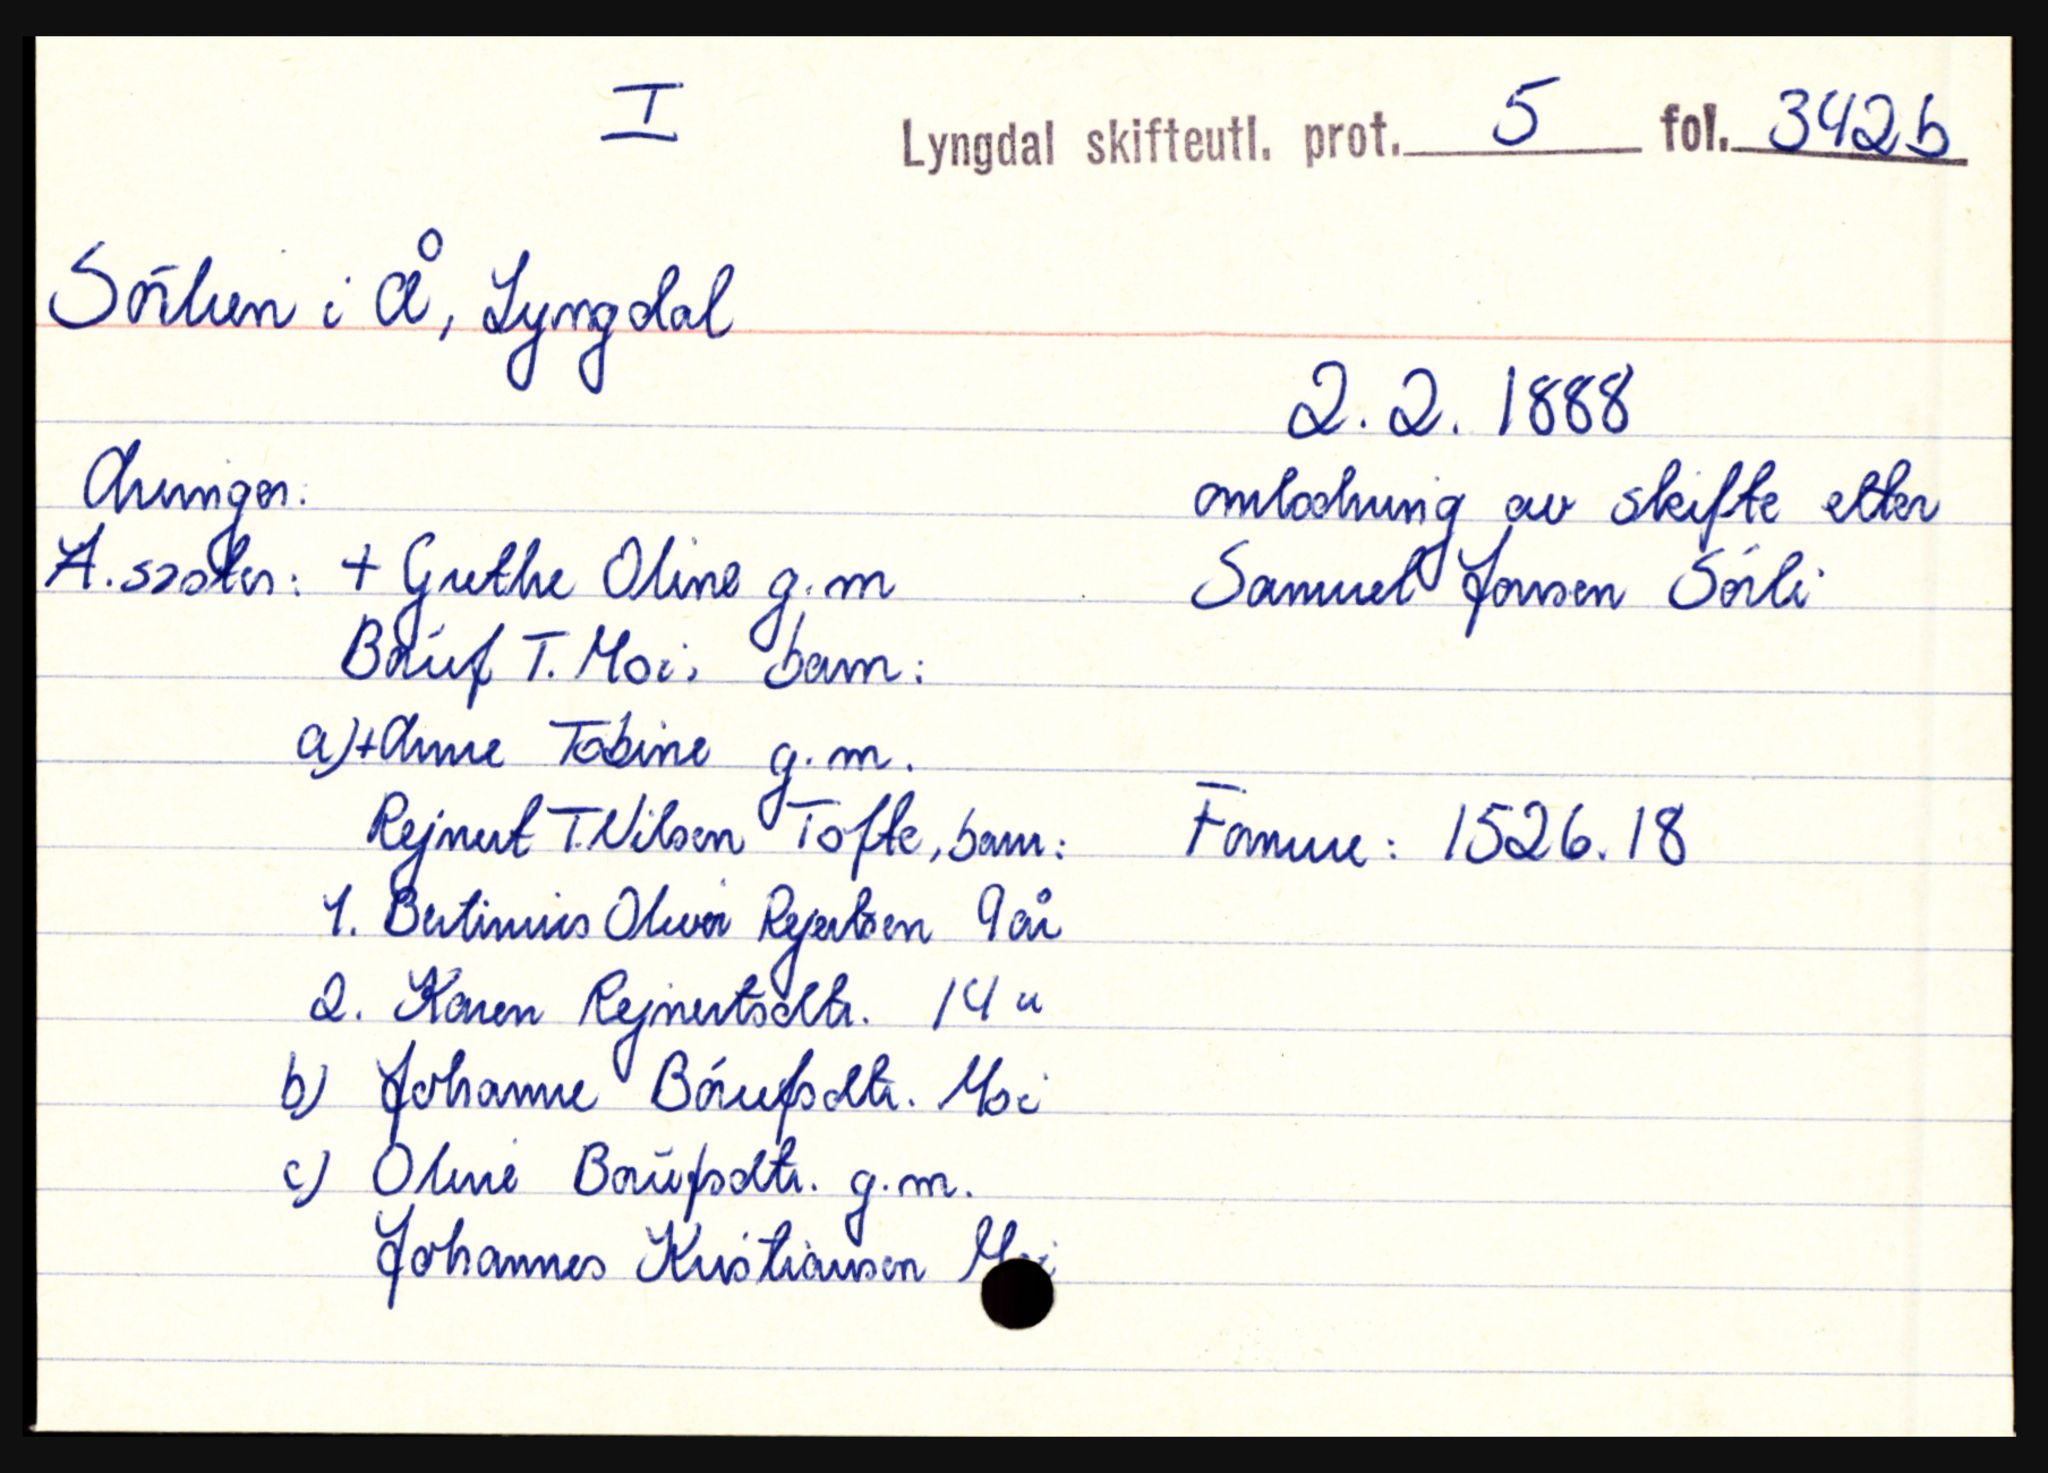 I
Lyngdal skifteutl. prot. 5 fol. 342b
Sörlien i Å, Lyngdal
2.2. 1888
Arvinger:
omlodning av skifte etter
A. søster: + Grethe Oline g.m
Samuel Jonsen Sörli
Böruf T. Moi, barn:
a) + Anne Tobine g.m.
Rejnert T. Nilsen Tofte, barn:
Formue: 1526.18
1. Bertinius Oliver Rejertsen 9 år
2. Karen Rejnertsdtr. 14 "
b) Johanne Börufsdtr. Moi
c) Oline Börufsdtr. g.m.
Johannes Kristiansen Moi